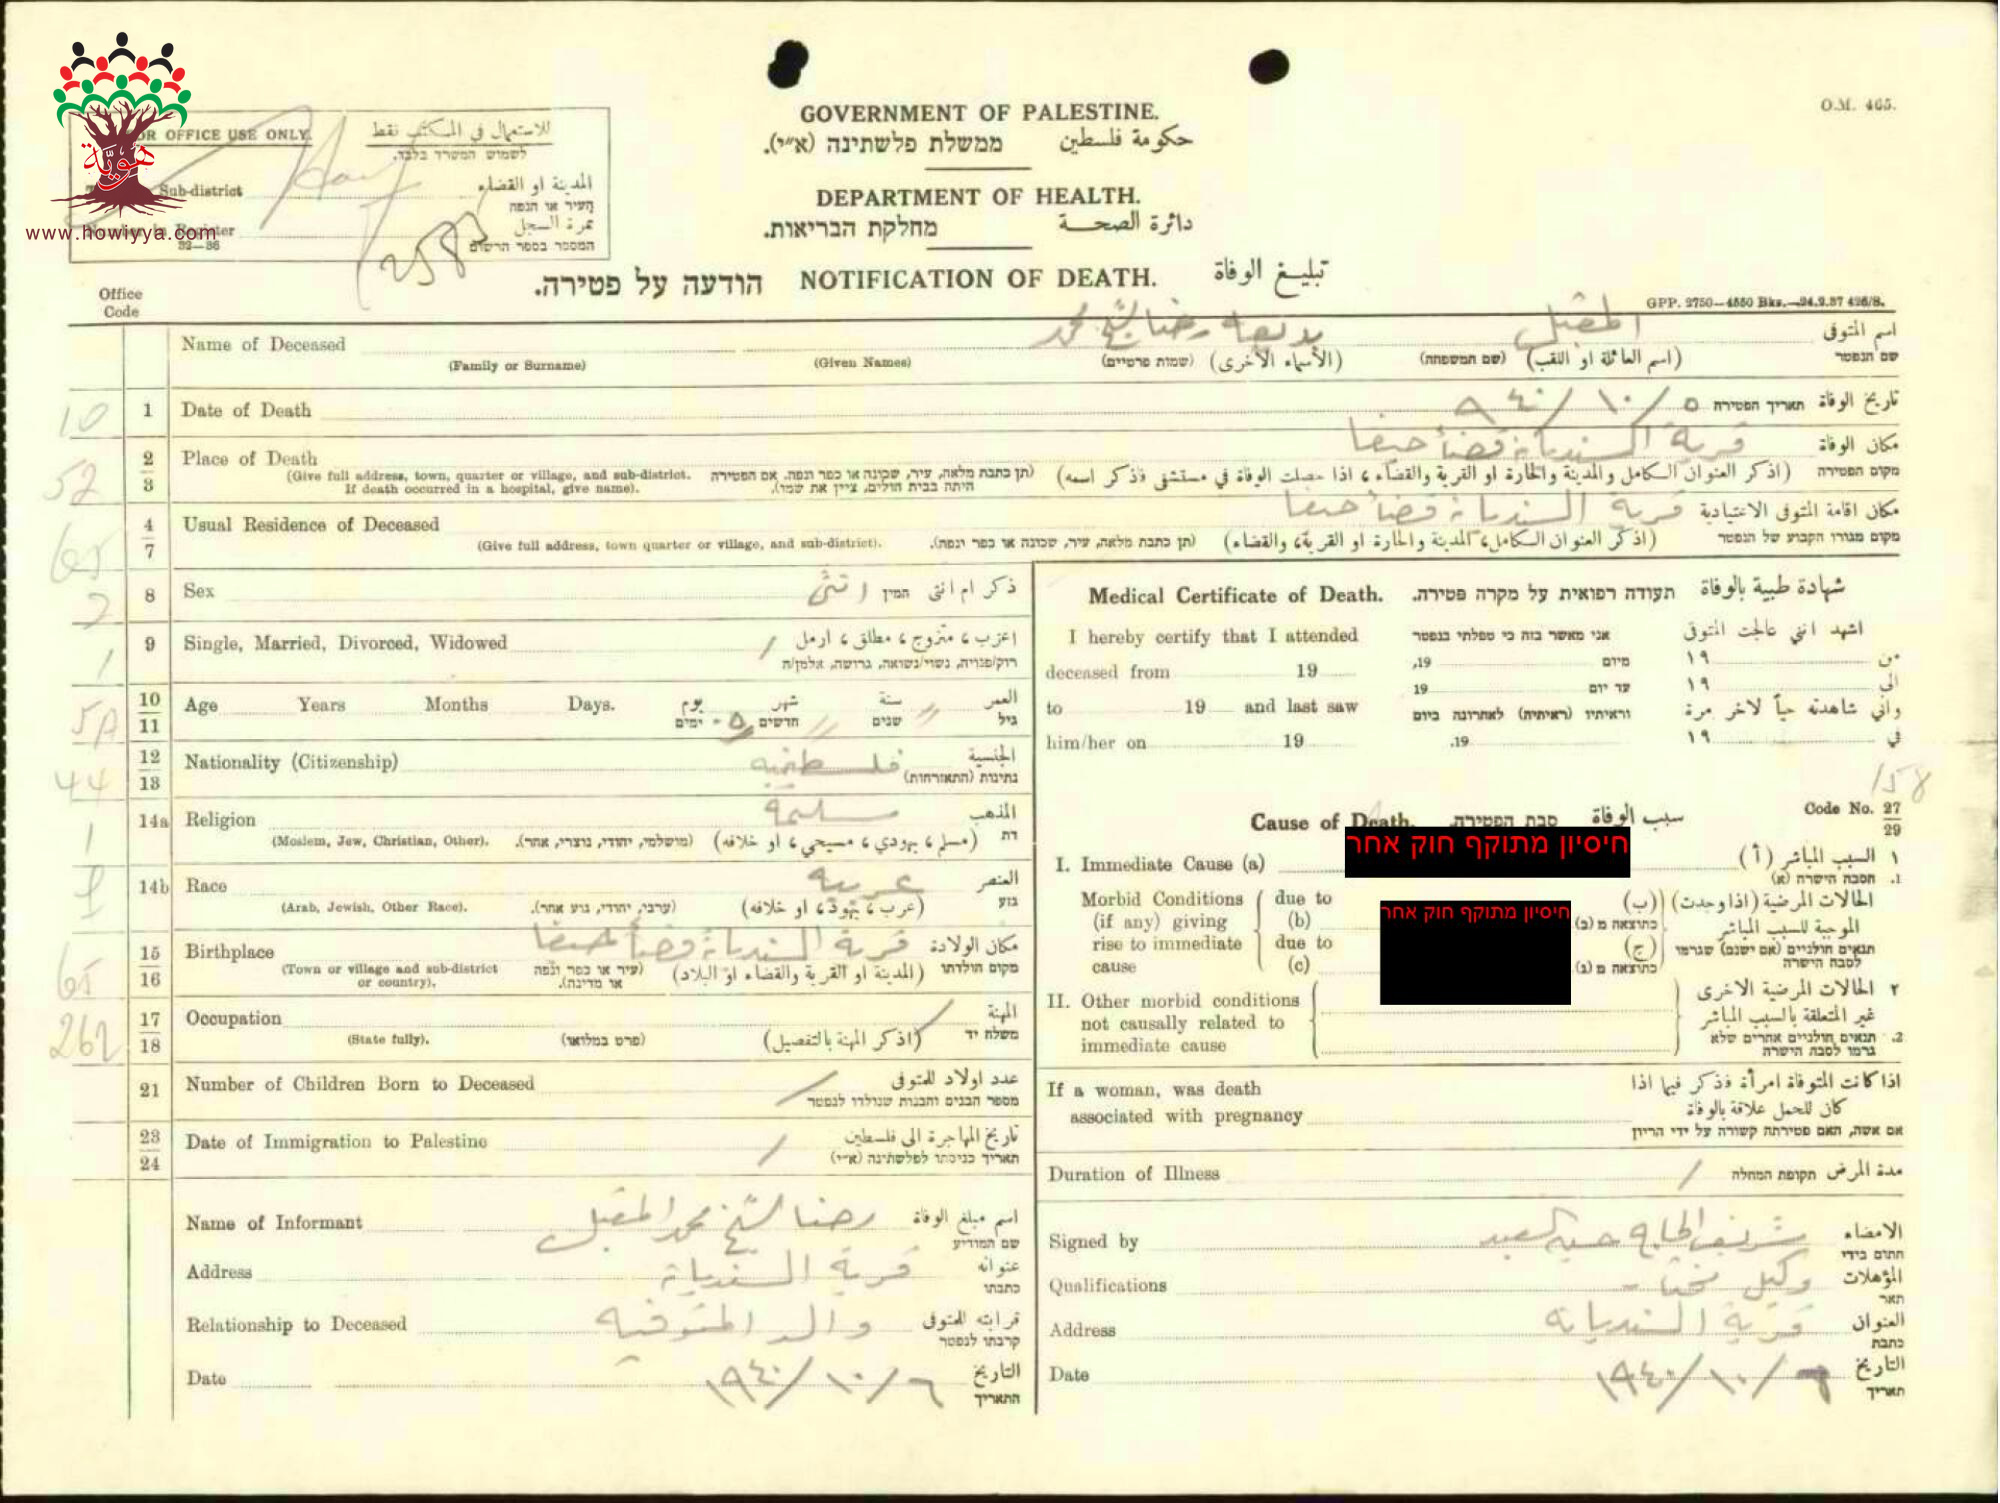 O.M. 465.
GOVERNMENT OF PALESTINE.
حكومة فلسطين ממשלת פלשתינה (א״י).
DEPARTMENT OF HEALTH.
دائرة الصحة מחלקת הבריאות.
تبليغ الوفاة NOTIFICATION OF DEATH. הודעה על פטירה.
GPP. 2750—4550 Bks.—24.9.37 426/S.
FOR OFFICE USE ONLY. للاستعمال في المكتب نقط
לשמוש המשרד בלבד.
Sub-district المدينة او القضاء
העיר או הנפה
Number in Register نمرة السجل
32—36 המספר בספר הרשום
هوية
www.howiyya.com
Office
Code
Name of Deceased المقبل بديعه رضا الشيخ محمد اسم المتوفى
(Family or Surname) (Given Names) (שמות פרטיים) (الأسماء الأخرى) (שם המשפחה) (اسم العائلة او اللقب) שם הנפטר
10 1 Date of Death ٥ / ١٠ / ٩٤٠ תאריך הפטירה تاريخ الوفاة
52 2 3 Place of Death قرية السنديانة قضأ حيفا مكان الوفاة
(Give full address, town, quarter or village, and sub-district. (תן כתבת מלאה, עיר, שכונה או כפר ונפה. אם הפטירה (اذكر العنوان الكامل والمدينة والحارة او القرية والقضاء، اذا حصلت الوفاة في مستشفى فذكر اسمه) מקום הפטירה
If death occurred in a hospital, give name). היתה בבית חולים, ציין את שמו).
65 4 7 Usual Residence of Deceased قرية السنديانة قضأ حيفا مكان اقامة المتوفى الاعتيادية
(Give full address, town quarter or village, and sub-district). (תן כתבת מלאה, עיר, שכונה או כפר ונפה). (اذكر العنوان الكامل، المدينة والحارة او القرية، والقضاء) מקום מגורו הקבוע של הנפטר
2 8 Sex انثى המין ذكر ام انثى
1 9 Single, Married, Divorced, Widowed / اعزب، متزوج، مطلق، ارمل
רוק/פנויה, נשוי/נשואה, גרושה, אלמן/ה
10 11 Age Years Months Days. يوم شهر سنة العمر
ימים - ٥ חדשים // שנים // גיל
44 12 13 Nationality (Citizenship) فلسطينيه الجنسية
נתינות (התאזרחות)
1 14a Religion مسلمة المذهب
(Moslem, Jew, Christian, Other). (מושלמי, יהודי, נוצרי, אחר). (مسلم، يهودي، مسيحي، او خلافه) דת
14b Race عربيه العنصر
(Arab, Jewish, Other Race). (ערבי, יהודי, גזע אחר). (عرب، يهود، او خلافه) גזע
65 15 16 Birthplace قرية السنديانة قضأ حيفا مكان الولادة
(Town or village and sub-district (עיר או כפר ונפה (المدينة او القرية والقضاء او البلاد) מקום הולדתו
or country). או מדינה).
262 17 18 Occupation / المهنة
(State fully). (פרט במלואו) (اذكر المهنة بالتفصيل) משלח יד
21 Number of Children Born to Deceased / عدد اولاد للمتوفى
מספר הבנים והבנות שנולדו לנפטר
23 24 Date of Immigration to Palestine / تاريخ المهاجرة الى فلسطين
תאריך כניסתו לפלשתינה (א״י)
Name of Informant رضا الشيخ محمد المقبل اسم مبلغ الوفاة
שם המודיע
Address قرية السنديانة عنوانه
כתבתו
Relationship to Deceased والد المتوفيه قرابته للمتوفى
קרבתו לנפטר
Date ٦ / ١٠ / ١٩٤٠ التاريخ
התאריך
Medical Certificate of Death. תעודה רפואית על מקרה פטירה. شهادة طبية بالوفاة
I hereby certify that I attended אני מאשר בזה כי טפלתי בנפטר اشهد انني عالجت المتوفى
deceased from 19 מיום 19, من ١٩
to 19 and last saw עד יום 19 الى ١٩
וראיתיו (ראיתיה) לאחרונה ביום واني شاهدته حياً لاخر مرة
him/her on 19 19. في ١٩
158
Cause of Death. סבת הפטירה. سبب الوفاة Code No. 27 29
I. Immediate Cause (a) חיסיון מתוקף חוק אחר ١ السبب المباشر (أ)
1. הסבה הישרה (א)
Morbid Conditions due to الحالات المرضية (اذا وجدت) (ب)
(if any) giving (b) חיסיון מתוקף חוק אחר כתוצאה מ (ב) الموجبة للسبب المباشر
rise to immediate due to (ج) תנאים חולניים (אם ישנם) שגרמו
cause (c) כתוצאה מ (ג) לסבה הישרה
II. Other morbid conditions ٢ الحالات المرضية الاخرى
not causally related to غير المتعلقة بالسبب المباشر
immediate cause 2. תנאים חולניים אחרים שלא
גרמו לסבה הישרה
If a woman, was death اذا كانت المتوفاة امرأة فذكر فيما اذا
associated with pregnancy كان للحمل علاقة بالوفاة
אם אשה, האם פטירתה קשורה על ידי הריון
Duration of Illness / תקופת המחלה مدة المرض
Signed by شريف الحاج الامضاء
חתום בידי
Qualifications وكيل مختار المؤهلات
תאר
Address قرية السنديانه العنوان
כתבת
Date ٦ / ١٠ / ١٩٤٠ التاريخ
תאריך